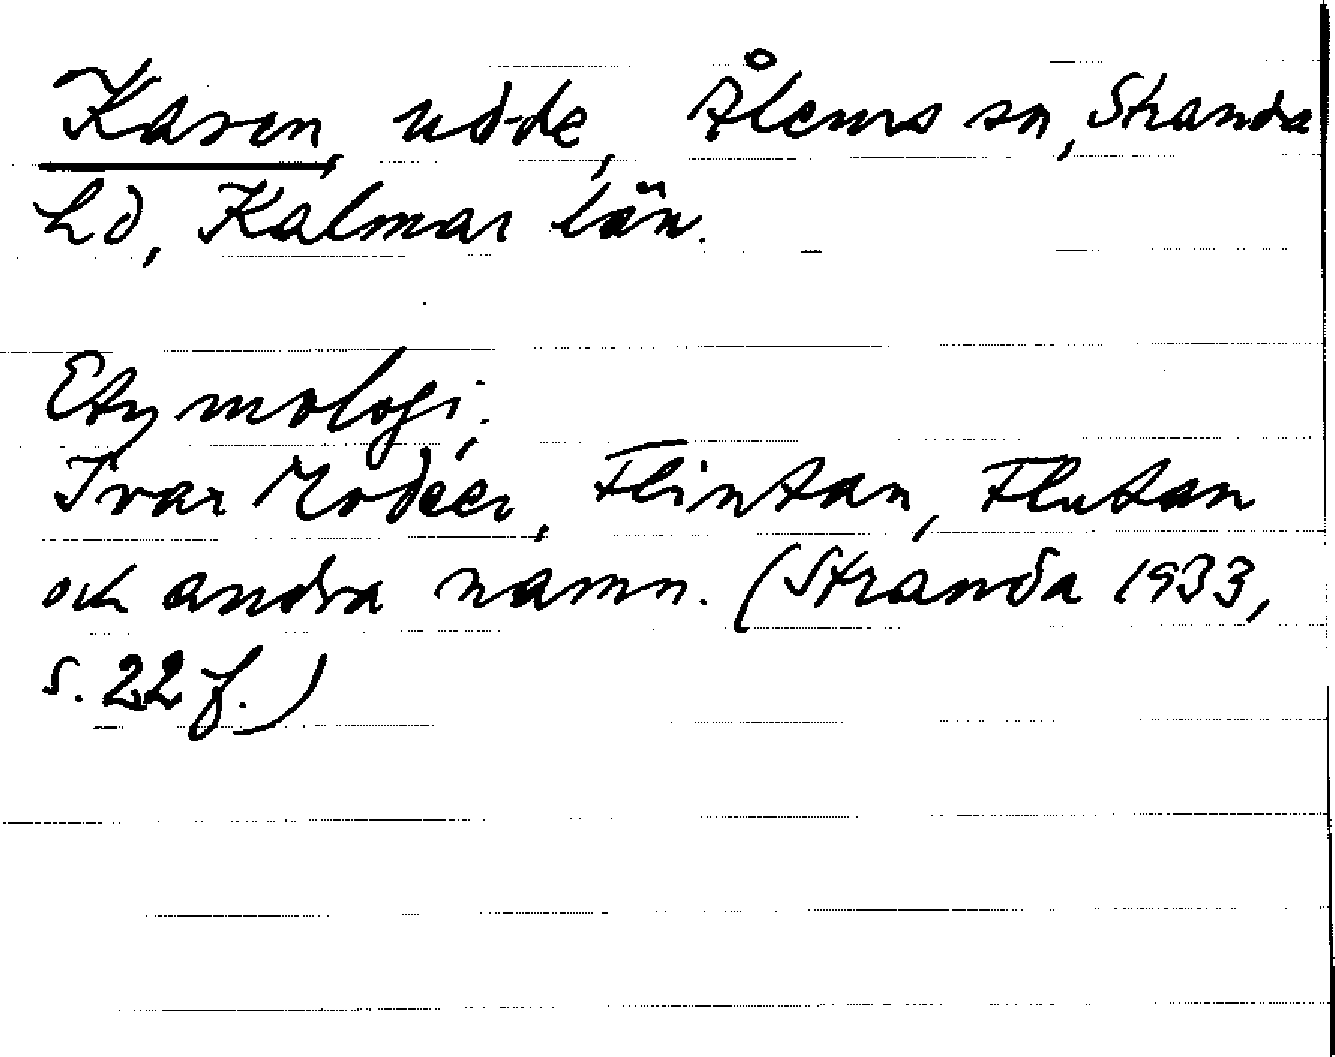 Karen, udde, Ålems sn, Stranda
hd, Kalmar län.
Etymologi;
Ivar Modéer, Flintan, Flutan
och andra namn. (Stranda 1933,
s. 22 f.)